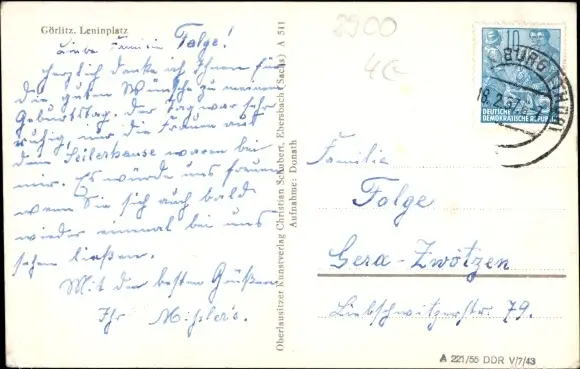 Görlitz. Leninplatz
Liebe Familie Folge!
Herzlich danke ich Ihnen für
die guten Wünsche zu meinem
Geburtstag. Der Tag war sehr
ruhig, nur die Frauen aus
dem Seilerhause waren bei
mir. Es würde uns freuen
wenn Sie sich auch bald
wieder einmal bei uns
sehen ließen.
Mit den besten Grüßen
Ihr
Oberlausitzer Kunstverlag Christian Schubert, Ebersbach (Sachs) A 511
Aufnahme: Donath
2900
4€
10
BURG (THÜR)
DEUTSCHE
DEMOKRATISCHE REPUBLIK
Familie
Folge
Gera-Zwötzen
Liebschwitzerstr. 79.
A 221/55 DDR V/7/43